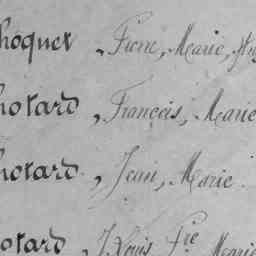 hoquet, Pierre, Marie,
hotard, François, Marie
hotard, Jean, Marie.
otard, J. Louis Frs Marie